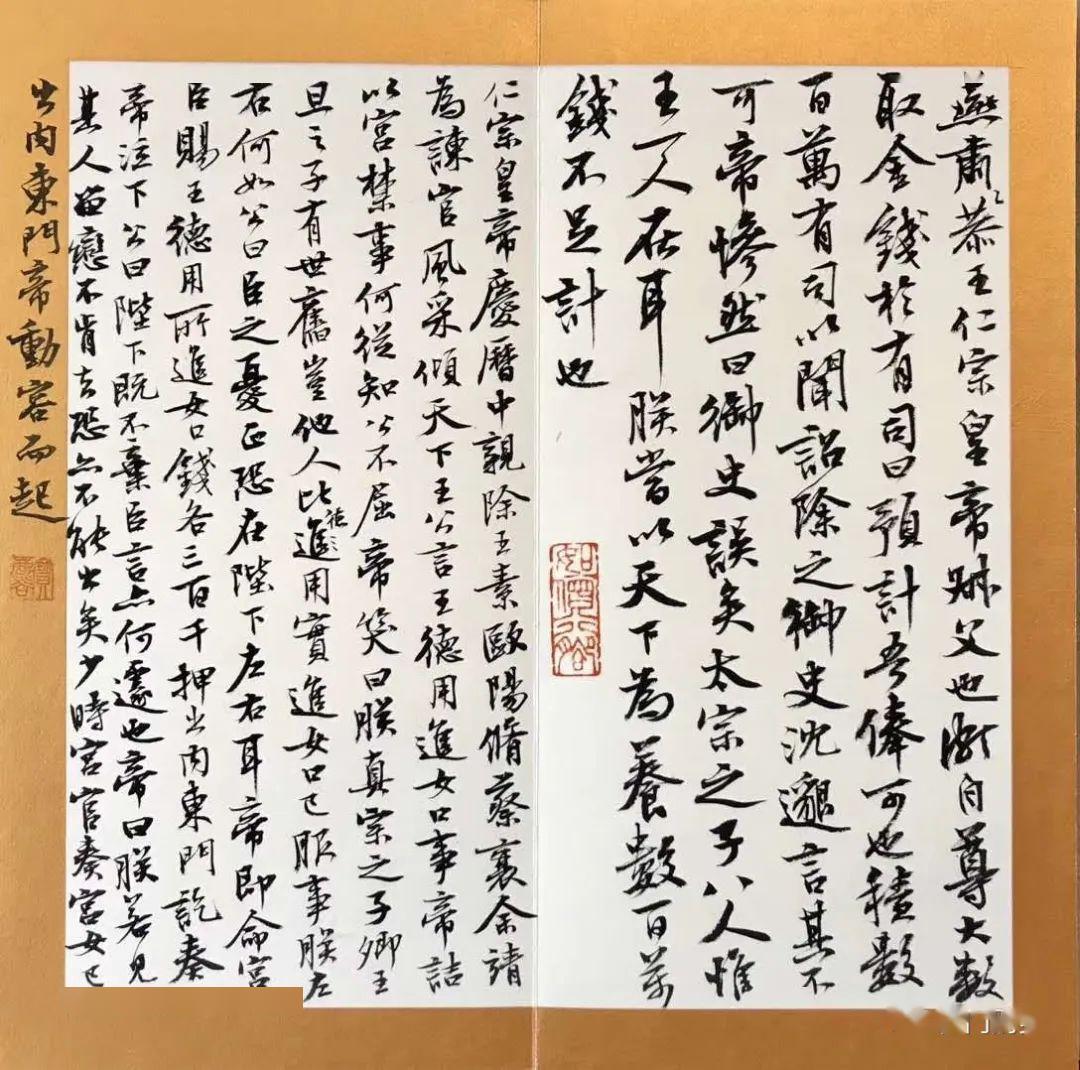 燕肅恭王仁宗皇帝叔父也漸自尊大數
取金錢於有司曰預計吾俸可也積數
百萬有司以聞詔除之御史沈邈言其不
可帝慘然曰御史誤矣太宗之子八人惟
王一人在耳朕當以天下為養數百萬
錢不足計也
仁宗皇帝慶曆中親除王素歐陽脩蔡襄余靖
為諫官風采傾天下王公言王德用進女口事帝詰
以宮禁事何從知公不屈帝笑曰朕真宗之子卿王
旦之子有世舊豈他人比德進用實進女口已服事朕左
右何如公曰臣之憂正恐在陛下左右耳帝即命宮
臣賜王德用所進女口錢各三百千押出內東門訖奏
帝泣下公曰陛下既不棄臣言亦何遽也帝曰朕若見
其人留戀不肯去恐亦不能出矣少時宮官奏宮女已
出內東門帝動容而起